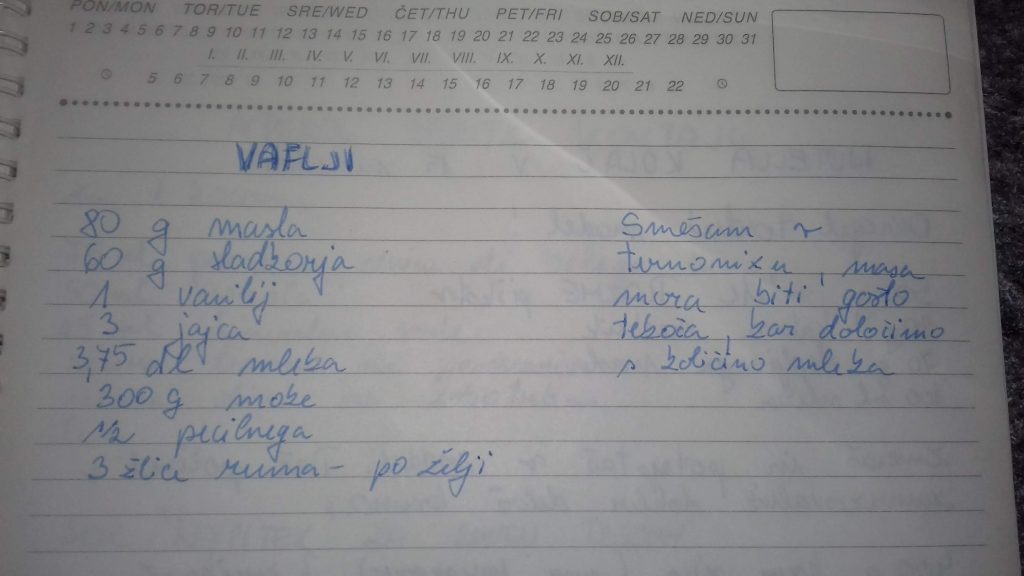 PON/MON TOR/TUE SRE/WED ČET/THU PET/FRI SOB/SAT NED/SUN
1 2 3 4 5 6 7 8 9 10 11 12 13 14 15 16 17 18 19 20 21 22 23 24 25 26 27 28 29 30 31
I. II. III. IV. V. VI. VII. VIII. IX. X. XI. XII.
5 6 7 8 9 10 11 12 13 14 15 16 17 18 19 20 21 22
VAFLJI
80 g masla
60 g sladkorja
1 vanilij
3 jajca
3,75 dl mleka
300 g moke
1/2 pecilnega
3 žlice ruma - po želji
Smešam v
termomixu, masa
mora biti gosto
tekoča, kar določimo
s količino mleka